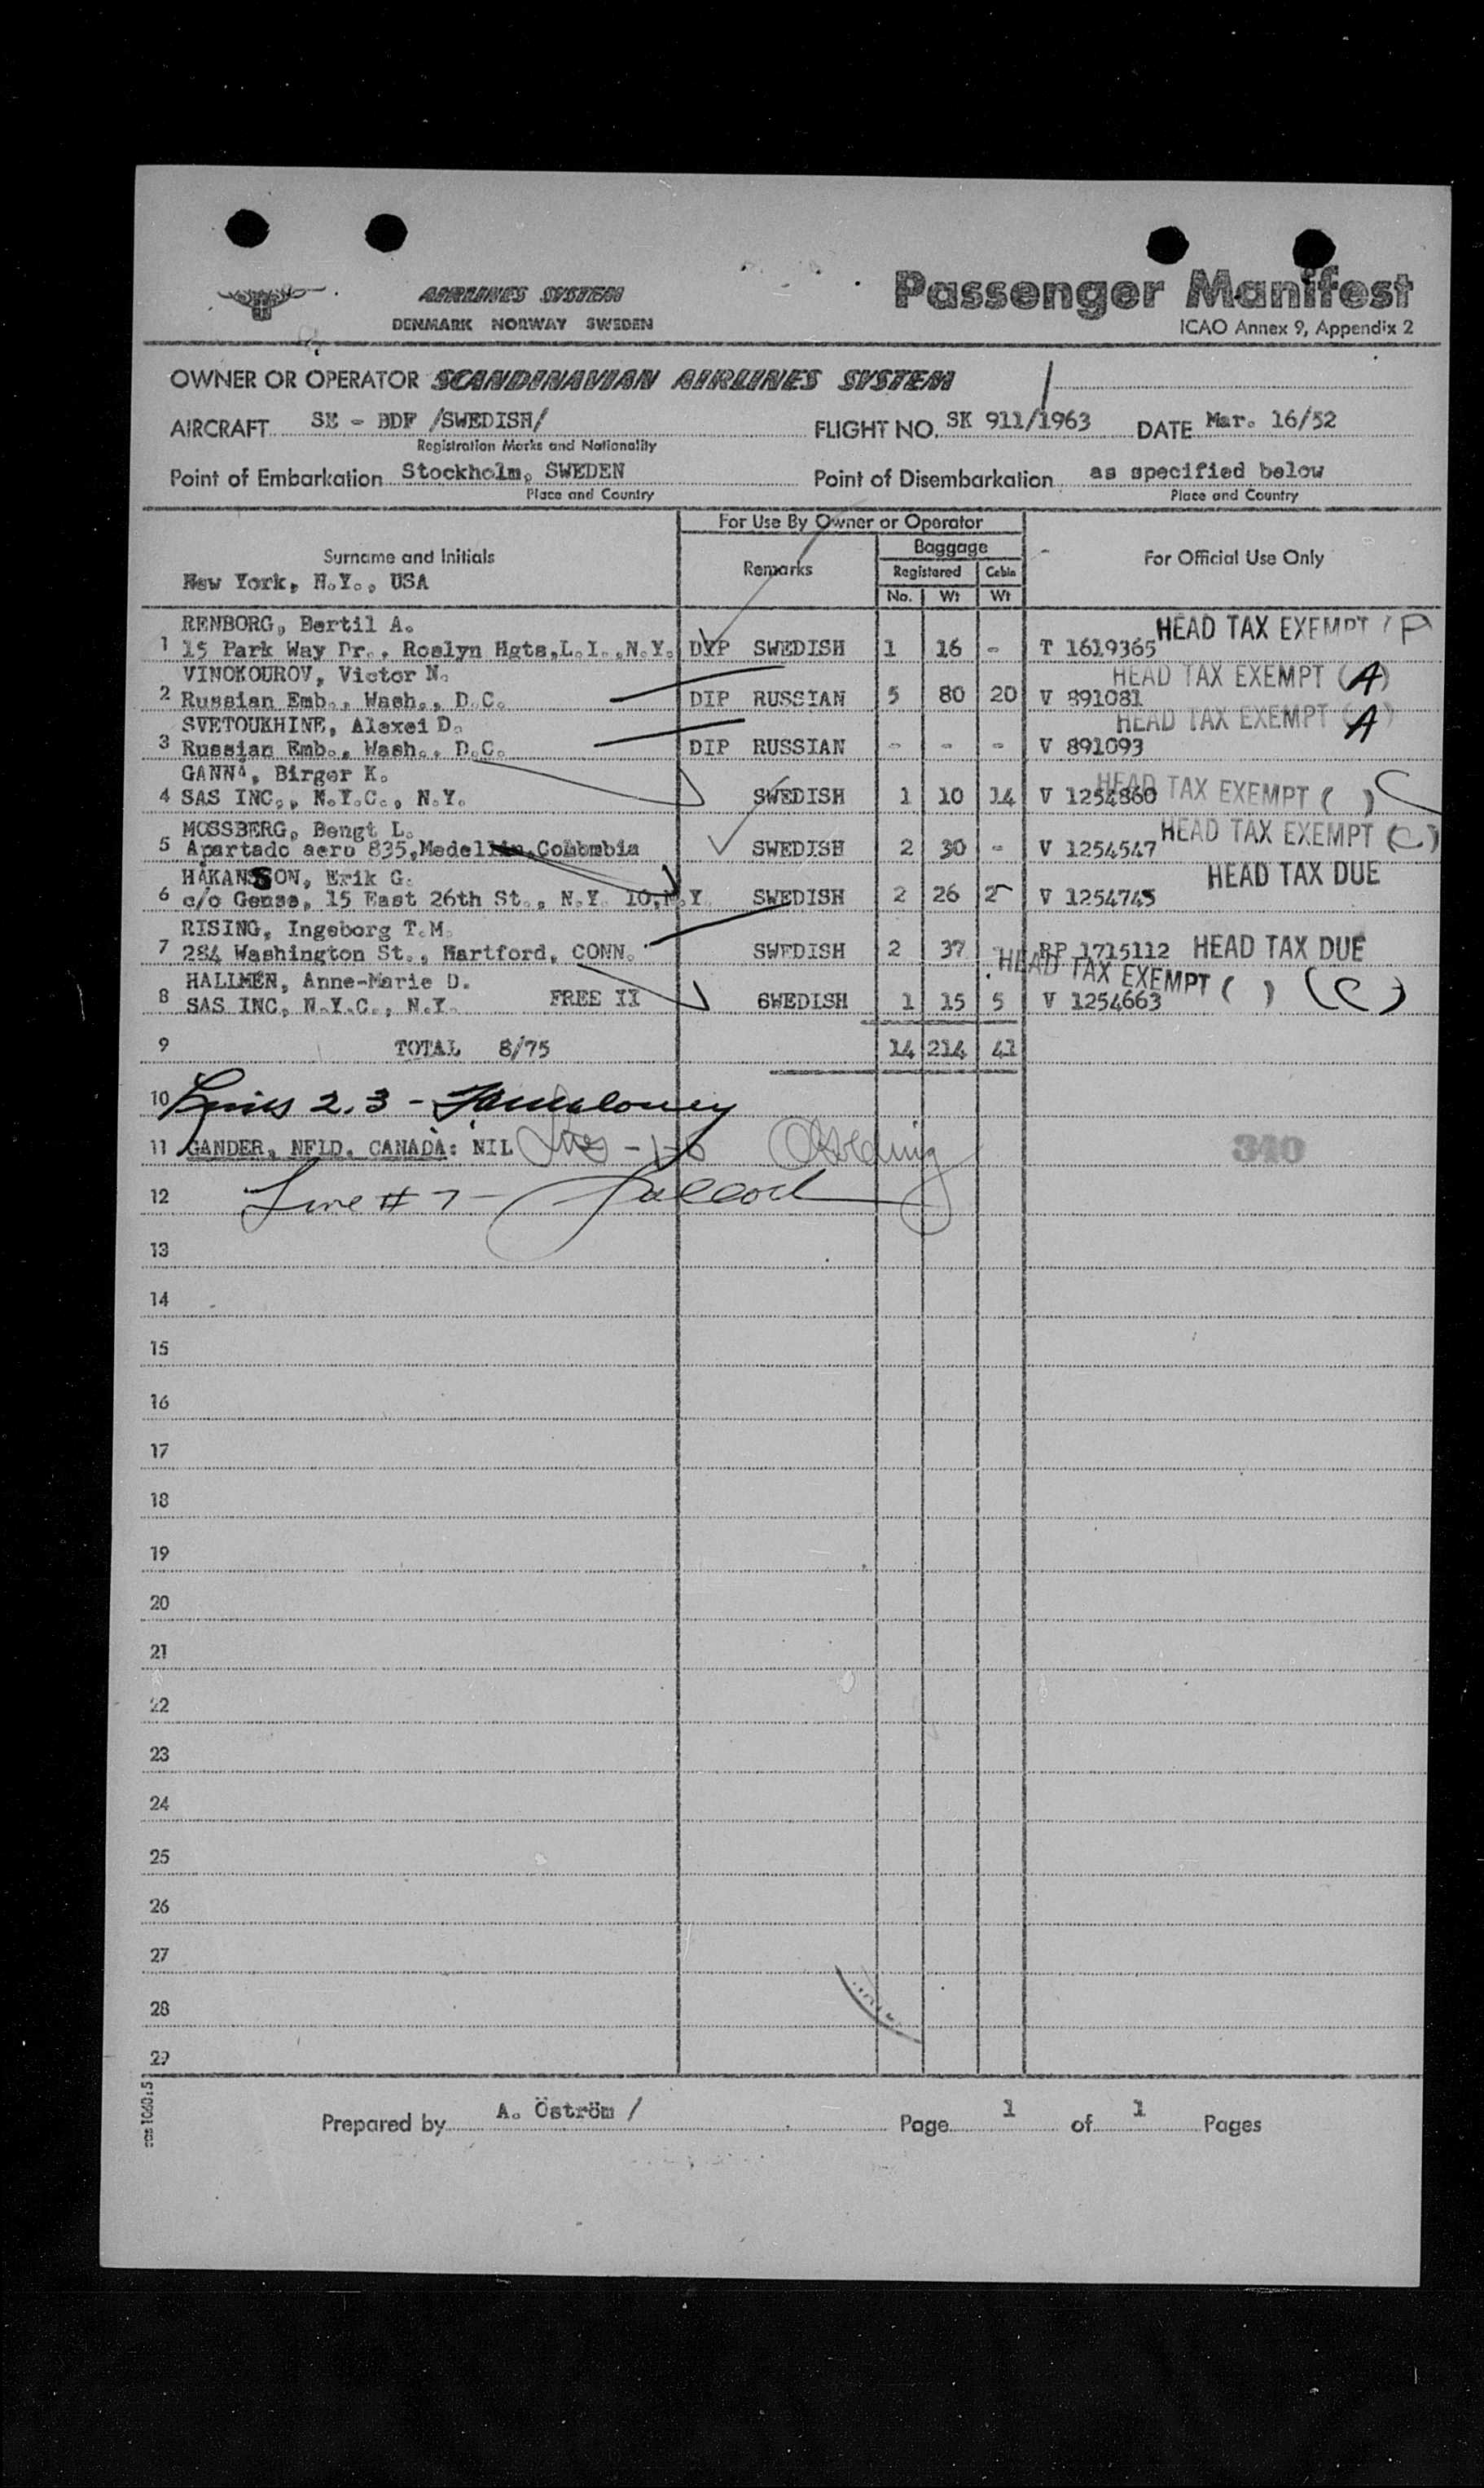 AIRLINES SYSTEM
DENMARK NORWAY SWEDEN
Passenger Manifest
ICAO Annex 9, Appendix 2
OWNER OR OPERATOR SCANDINAVIAN AIRLINES SYSTEM
AIRCRAFT SE - BDF /SWEDISH/ FLIGHT NO. SK 911/1963 DATE Mar. 16/52
Registration Marks and Nationality
Point of Embarkation Stockholm, SWEDEN Point of Disembarkation as specified below
Place and Country Place and Country
For Use By Owner or Operator
Surname and Initials Remarks Baggage For Official Use Only
Registered Cabin
New York, N.Y., USA
No. Wt Wt
RENBORG, Bertil A. HEAD TAX EXEMPT (P
1 15 Park Way Dr., Roslyn Hgts,L.I.,N.Y. DIP SWEDISH 1 16 - T 1619365
VINOKOUROV, Victor N. HEAD TAX EXEMPT (A)
2 Russian Emb., Wash., D.C. DIP RUSSIAN 5 80 20 V 891081
SVETOUKHINE, Alexei D. HEAD TAX EXEMPT (A)
3 Russian Emb., Wash., D.C. DIP RUSSIAN - - - V 891093
Birger K.
4 SAS INC., N.Y.C., N.Y. SWEDISH 1 10 14 V 1254860 HEAD TAX EXEMPT ( )
MOSSBERG, Bengt L. HEAD TAX EXEMPT (C)
5 Apartado aero 835, SWEDISH 2 30 - V 1254547
HÅKANSSON, Erik G. HEAD TAX DUE
6 c/o Gense, 15 East 26th St., N.Y. 10,N.Y. SWEDISH 2 26 2 V 1254745
RISING, Ingeborg T.M.
7 284 Washington St., Hartford, CONN. SWEDISH 2 37 - RP 1715112 HEAD TAX DUE
HALLMÉN, Anne-Marie D. HEAD TAX EXEMPT ( ) (C)
8 SAS INC, N.Y.C., N.Y. FREE II SWEDISH 1 15 5 V 1254663
9 TOTAL 8/75 14 214 41
10 Lines 2.3 -
11 GANDER, NFLD. CANADA: NIL 340
12 Line # 7 -
13
14
15
16
17
18
19
20
21
22
23
24
25
26
27
28
29
sas 1060:5
Prepared by A. Öström / Page 1 of 1 Pages